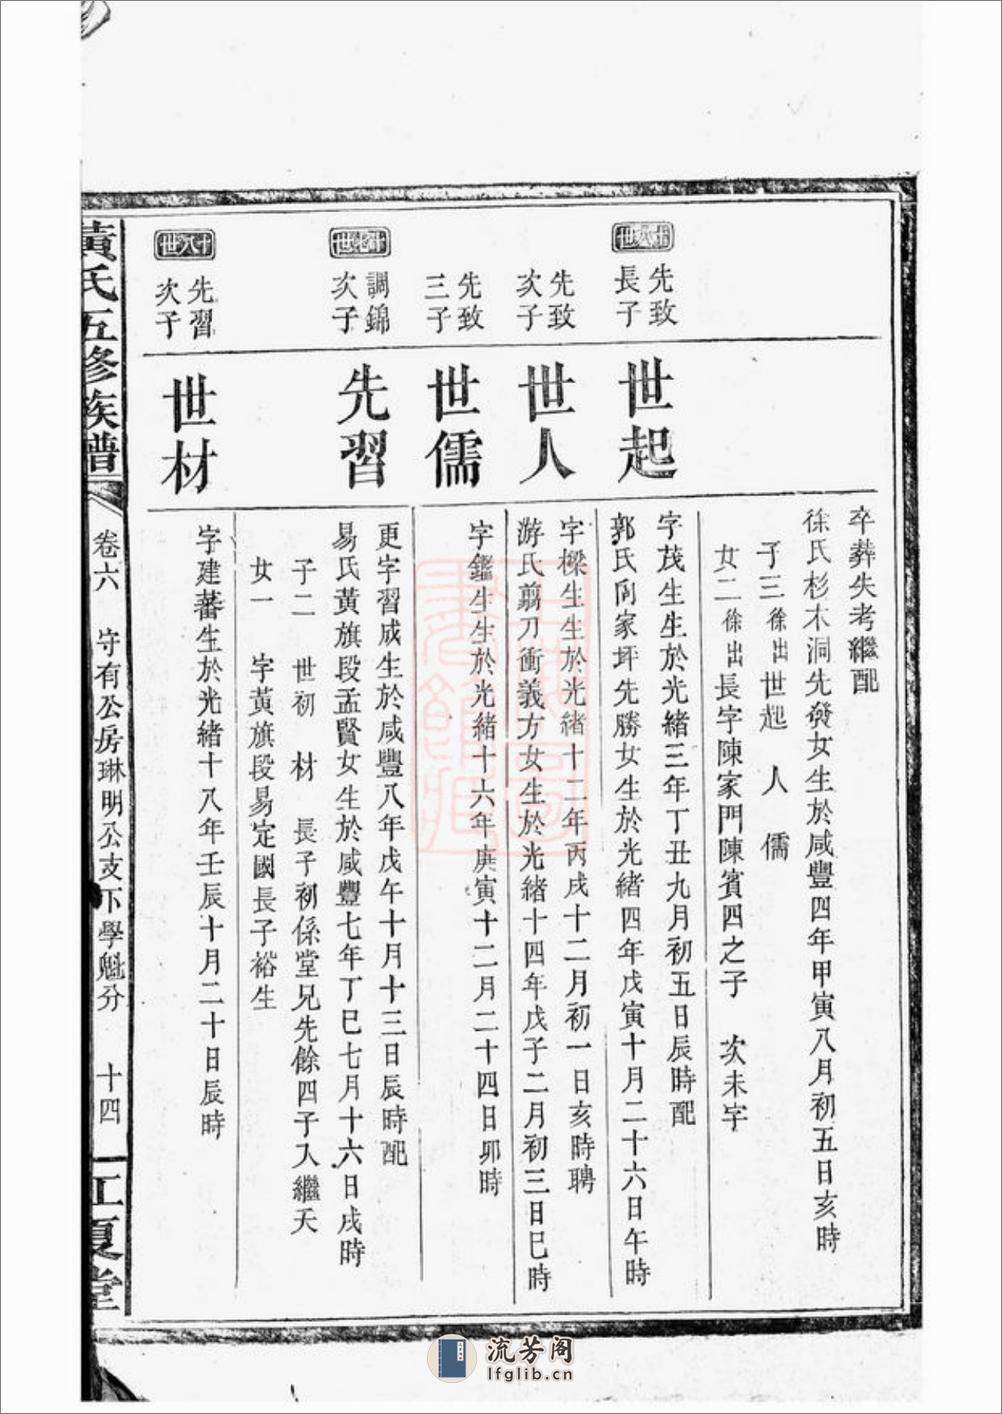 卒葬失考繼配
徐氏杉木洞先發女生於咸豐四年甲寅八月初五日亥時
子三徐出世起 人 儒
女二徐出長字陳家門陳賓四之子 次未字
十八世
先致
長子
世起
字茂生生於光緒三年丁丑九月初五日辰時配
郭氏向家坪先勝女生於光緒四年戊寅十月二十六日午時
先致
次子
世人
字樑生生於光緒十二年丙戌十二月初一日亥時聘
游氏翦刀衝義方女生於光緒十四年戊子二月初三日巳時
先致
三子
世儒
字鑑生生於光緒十六年庚寅十二月二十四日卯時
十七世
調錦
次子
先習
更字習成生於咸豐八年戊午十月十三日辰時配
易氏黃旗段孟賢女生於咸豐七年丁巳七月十六日戌時
子二 世初 材 長子初係堂兄先餘四子入繼夭
女一 字黃旗段易定國長子裕生
十八世
先習
次子
世材
字建蕃生於光緒十八年壬辰十月二十日辰時
黃氏五修族譜
卷六 守有公房琳明公支下學魁分 十四
江夏堂
流芳阁
lfglib.cn